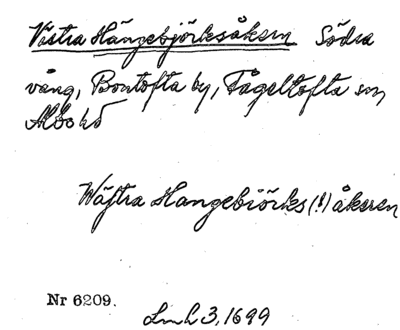 Västra Hängebjörksåkern Södra
vång, Bontofta by, Fågeltofta sn,
Albo hd
Wäftra Hangebiörks(!)åkeren
Nr 6209.
Lmh 3, 1699